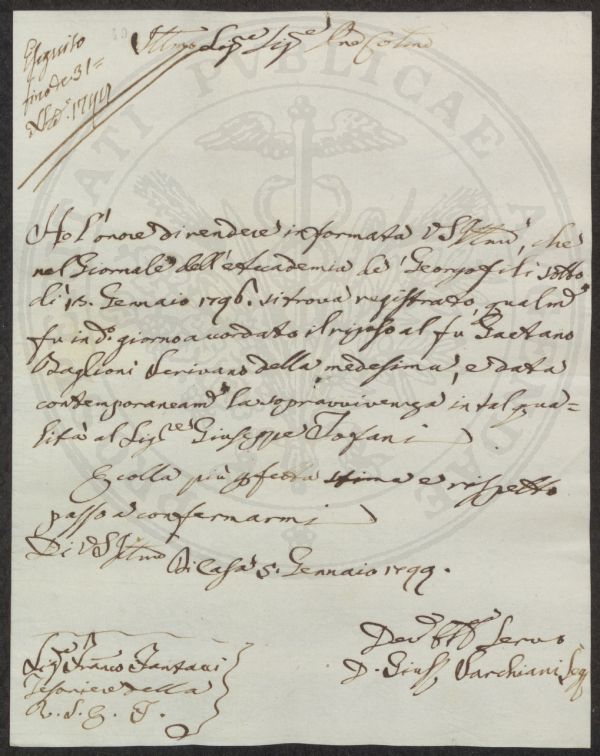 Eseguito
fino de 31=
Xbre 1799
Illmo Sigre Sigre Pne Colmo
Ho l'onore di rendere informata VS Illma, che
nel Giornale dell'Accademia de' Georgofili sotto
dì 13. Gennaio 1796. si trova registrato, qualmte
fu in do giorno accordato il riposo al fu Gaetano
Baglioni Scrivano della medesima, e data
contemporaneamte la sopravvivenza, in tal qua=
lità al Sigre Giuseppe Tofani
E colla più perfetta stima e rispetto
passo a confermarmi
Di VS Illma
Di Casa 5. Gennaio 1799.
Devmo Obbmo Servo
D. Giuse Sarchiani Segr
Sigre Franco
Tesoriere della
R. S. E. F.
PUBLICAE